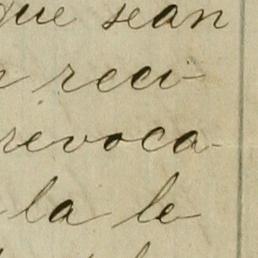 que sean
e reci-
revoca-
la le